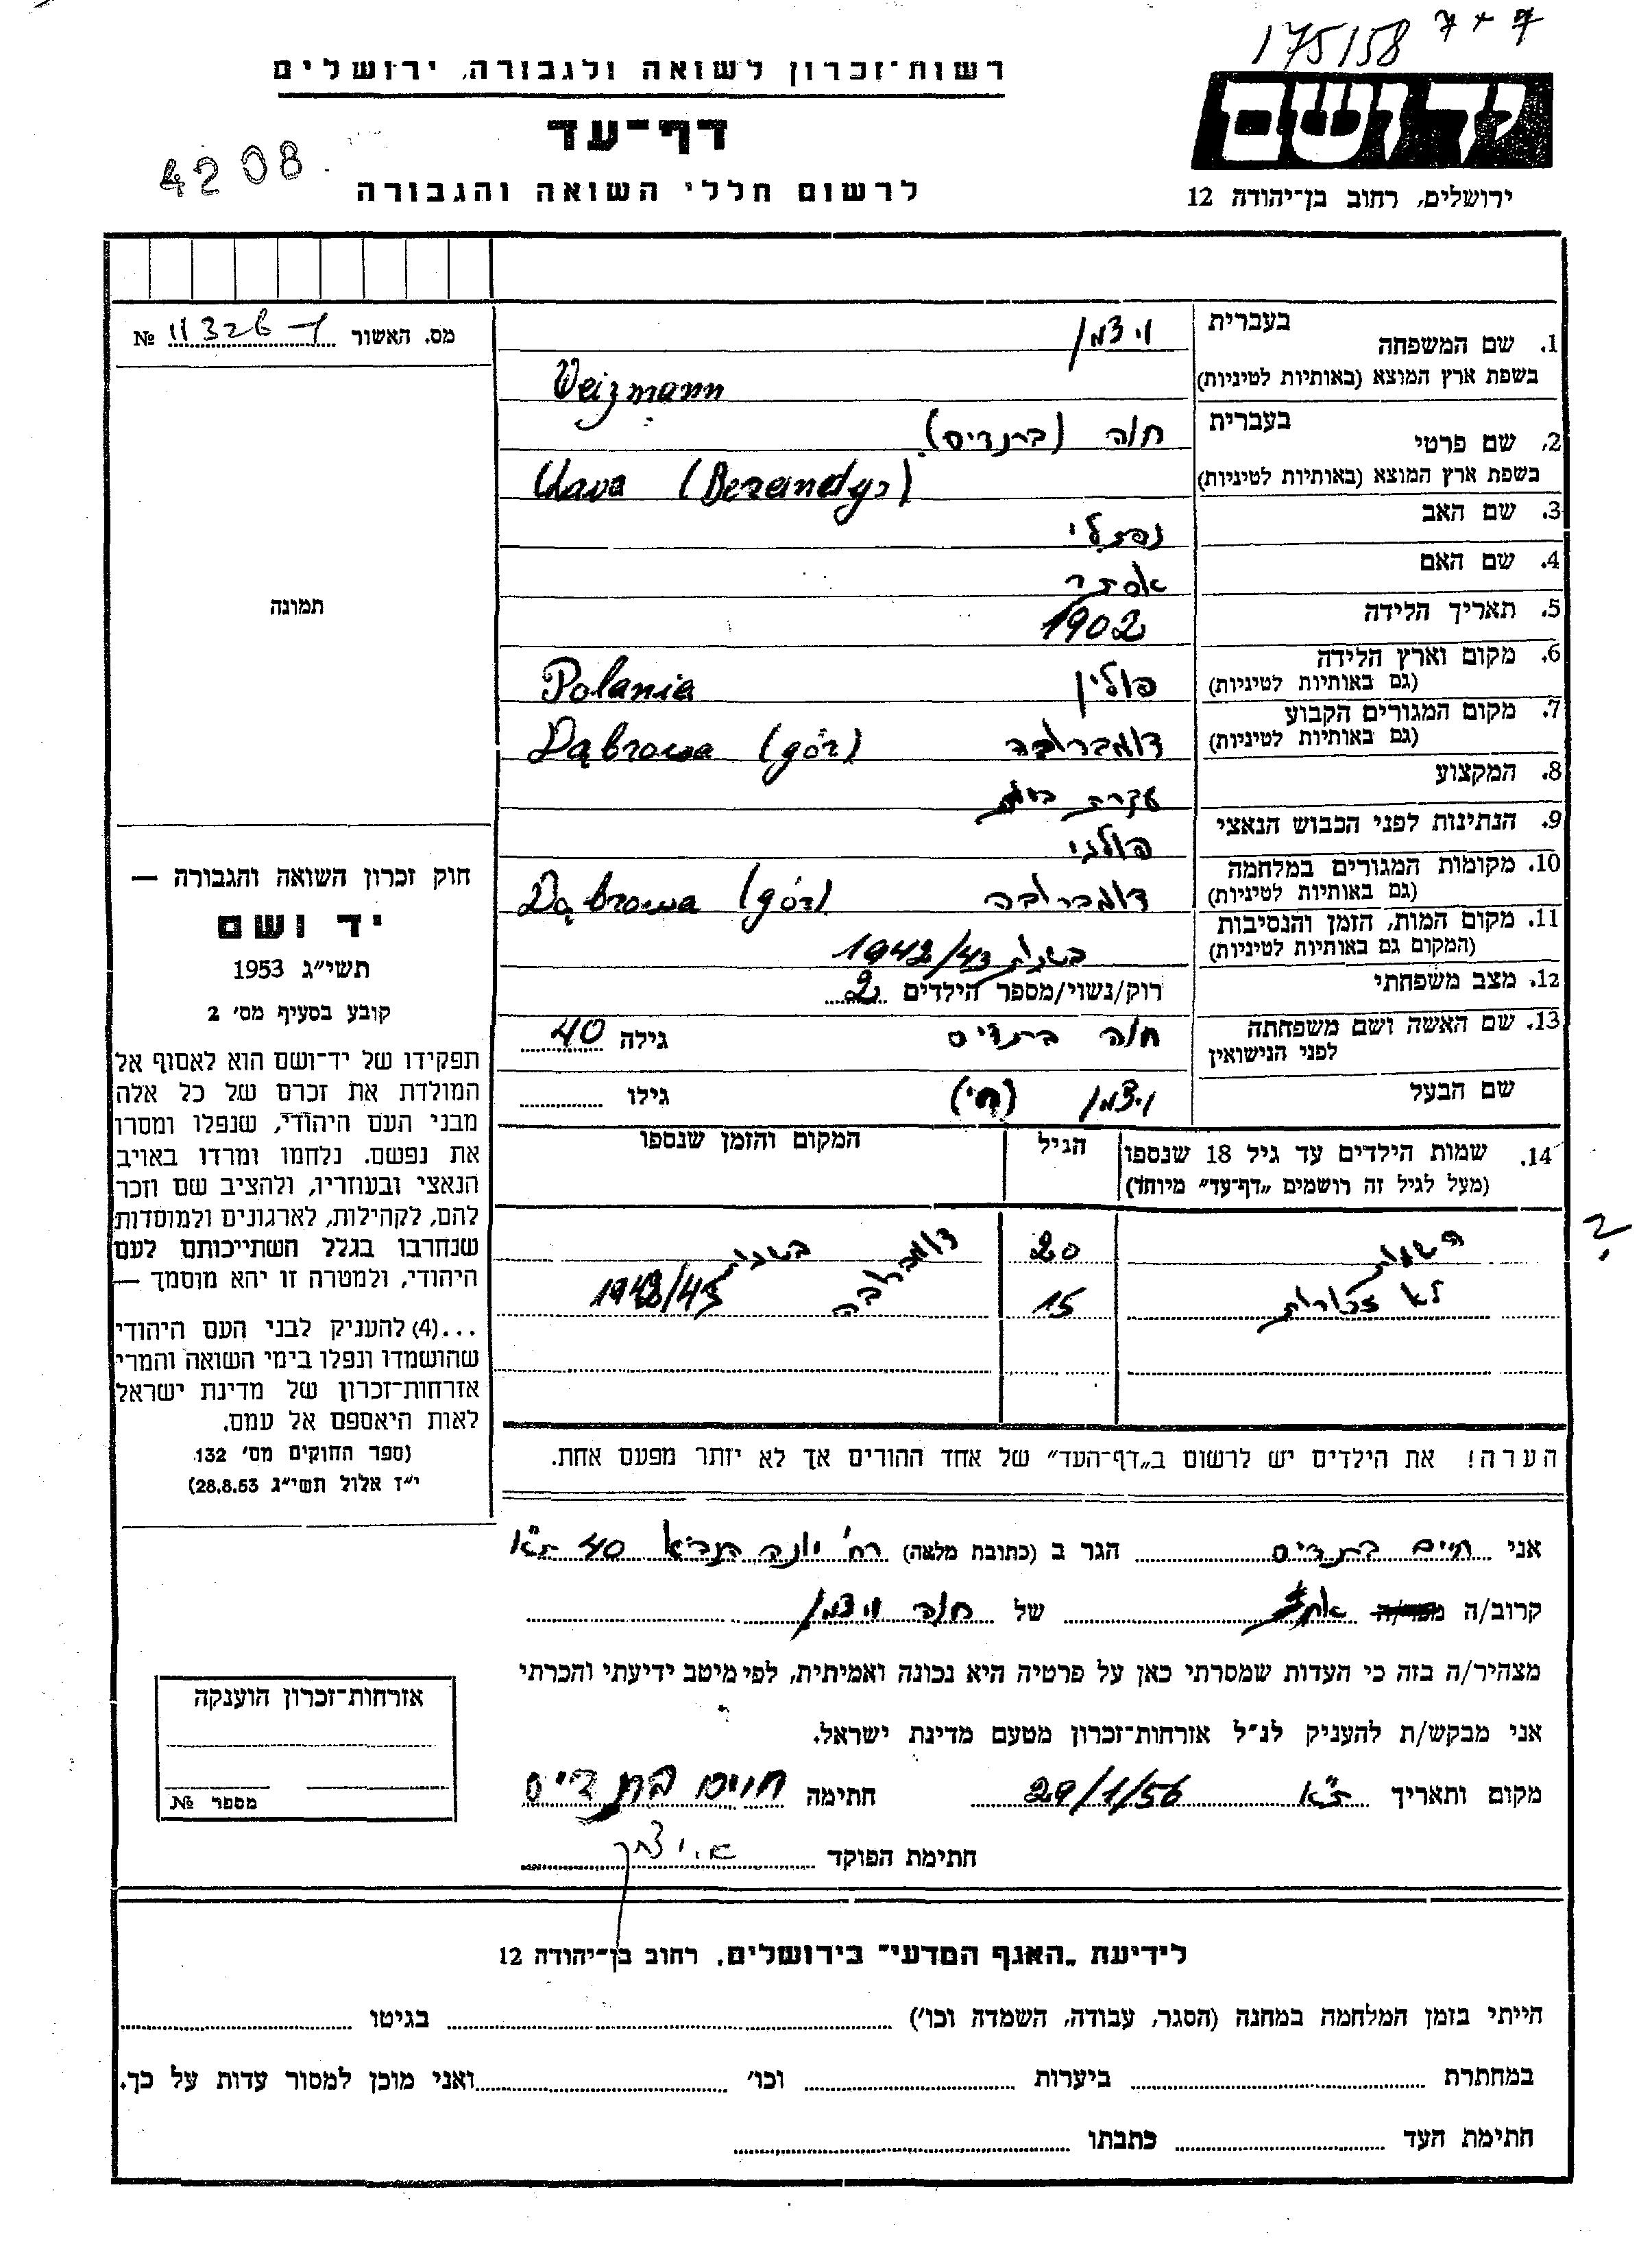 175158 7+7
רשות־זכרון לשואה ולגבורה, ירושלים
דף־עד
4208
לרשום חללי השואה והגבורה
יד ושם
ירושלים, רחוב בן־יהודה 12
מס. האשור № 11326
1. שם המשפחה בעברית ויצמן
בשפת ארץ המוצא (באותיות לטיניות) Weizmann
2. שם פרטי בעברית חוה (ברנדיס)
בשפת ארץ המוצא (באותיות לטיניות) Chava (Berendys)
3. שם האב נפתלי
4. שם האם אסתר
5. תאריך הלידה 1902
6. מקום וארץ הלידה (גם באותיות לטיניות) פולין Polania
7. מקום המגורים הקבוע (גם באותיות לטיניות) דומברובה Dąbrowa (gór)
8. המקצוע עקרת בית
9. הנתינות לפני הכבוש הנאצי פולני
10. מקומות המגורים במלחמה (גם באותיות לטיניות) דומברובה Dąbrowa (gór)
11. מקום המות, הזמן והנסיבות (המקום גם באותיות לטיניות) בשנות 1942/43
12. מצב משפחתי רוק/נשוי/מספר הילדים 2
13. שם האשה ושם משפחתה לפני הנישואין חוה ברנדיס גילה 40
שם הבעל ויצמן (חי) גילו
14. שמות הילדים עד גיל 18 שנספו (מעל לגיל זה רושמים „דף־עד" מיוחד) הגיל המקום והזמן שנספו
השמות 20 דומברובה בשנות
לא זכורות 15 1942/43
?
הערה! את הילדים יש לרשום ב„דף־העד" של אחד ההורים אך לא יותר מפעם אחת.
תמונה
חוק זכרון השואה והגבורה —
יד ושם
תשי״ג 1953
קובע בסעיף מס׳ 2
תפקידו של יד־ושם הוא לאסוף אל
המולדת את זכרם של כל אלה
מבני העם היהודי, שנפלו ומסרו
את נפשם. נלחמו ומרדו באויב
הנאצי ובעוזריו, ולהציב שם וזכר
להם, לקהילות, לארגונים ולמוסדות
שנחרבו בגלל השתייכותם לעם
היהודי, ולמטרה זו יהא מוסמך —
...(4) להעניק לבני העם היהודי
שהושמדו ונפלו בימי השואה והמרי
אזרחות־זכרון של מדינת ישראל
לאות היאספם אל עמם.
(ספר החוקים מס׳ 132
י״ז אלול תשי״ג 28.8.53)
אני חיים ברנדיס הגר ב (כתובת מלאה) רח׳ יונה הנביא 40 ת״א
קרוב/ה של חוה ויצמן
מצהיר/ה בזה כי העדות שמסרתי כאן על פרטיה היא נכונה ואמיתית, לפי מיטב ידיעתי והכרתי
אני מבקש/ת להעניק לנ״ל אזרחות־זכרון מטעם מדינת ישראל.
מקום ותאריך ת״א 29/1/56 חתימה חיים ברנדיס
חתימת הפוקד
אזרחות־זכרון הוענקה
מספר №
לידיעת „האגף המדעי" בירושלים, רחוב בן־יהודה 12
הייתי בזמן המלחמה במחנה (הסגר, עבודה, השמדה וכו׳) בגיטו
במחתרת ביערות וכו׳ ואני מוכן למסור עדות על כך.
חתימת העד כתבתו